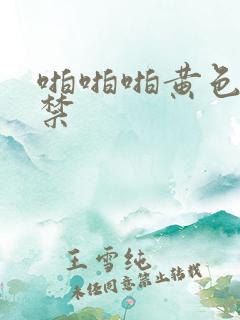 啪啪啪黄色
禁
王雪纯
未经同意禁止转载